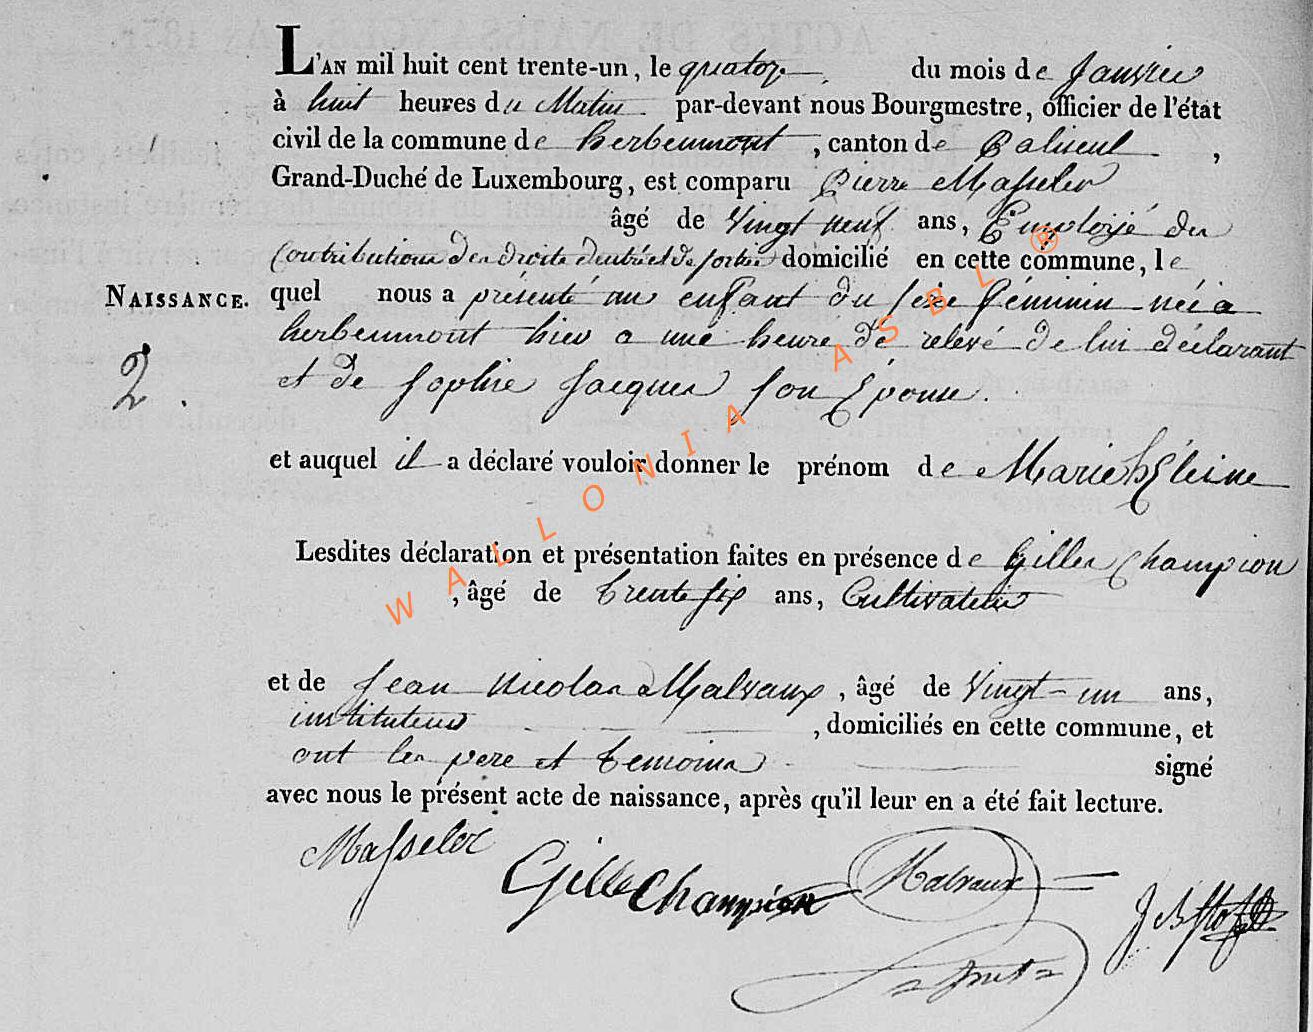 L'AN mil huit cent trente-un, le quatorze du mois de Janvier
à huit heures du Matin par-devant nous Bourgmestre, officier de l'état
civil de la commune de herbeumont, canton de Paliseul,
Grand-Duché de Luxembourg, est comparu Pierre Masseler
âgé de Vingt neuf ans, Employé des
Contributions des droits d'entrée et de sortie domicilié en cette commune, le
NAISSANCE. quel nous a présenté un enfant du sexe féminin née a
herbeumont hier a une heure de relevé de lui déclarant
2. et de Sophie Jacques son Epouse.
et auquel il a déclaré vouloir donner le prénom de Marie hEleine
Lesdites déclaration et présentation faites en présence de Gilles Champion
, âgé de trente six ans, Cultivateur
et de Jean Nicolas Malvaux, âgé de Vingt-un ans,
instituteur, domiciliés en cette commune, et
ont les pere et temoins signé
avec nous le présent acte de naissance, après qu'il leur en a été fait lecture.
Masseler
Gille Champion
Malvaux
WALLONIA ASBL ®